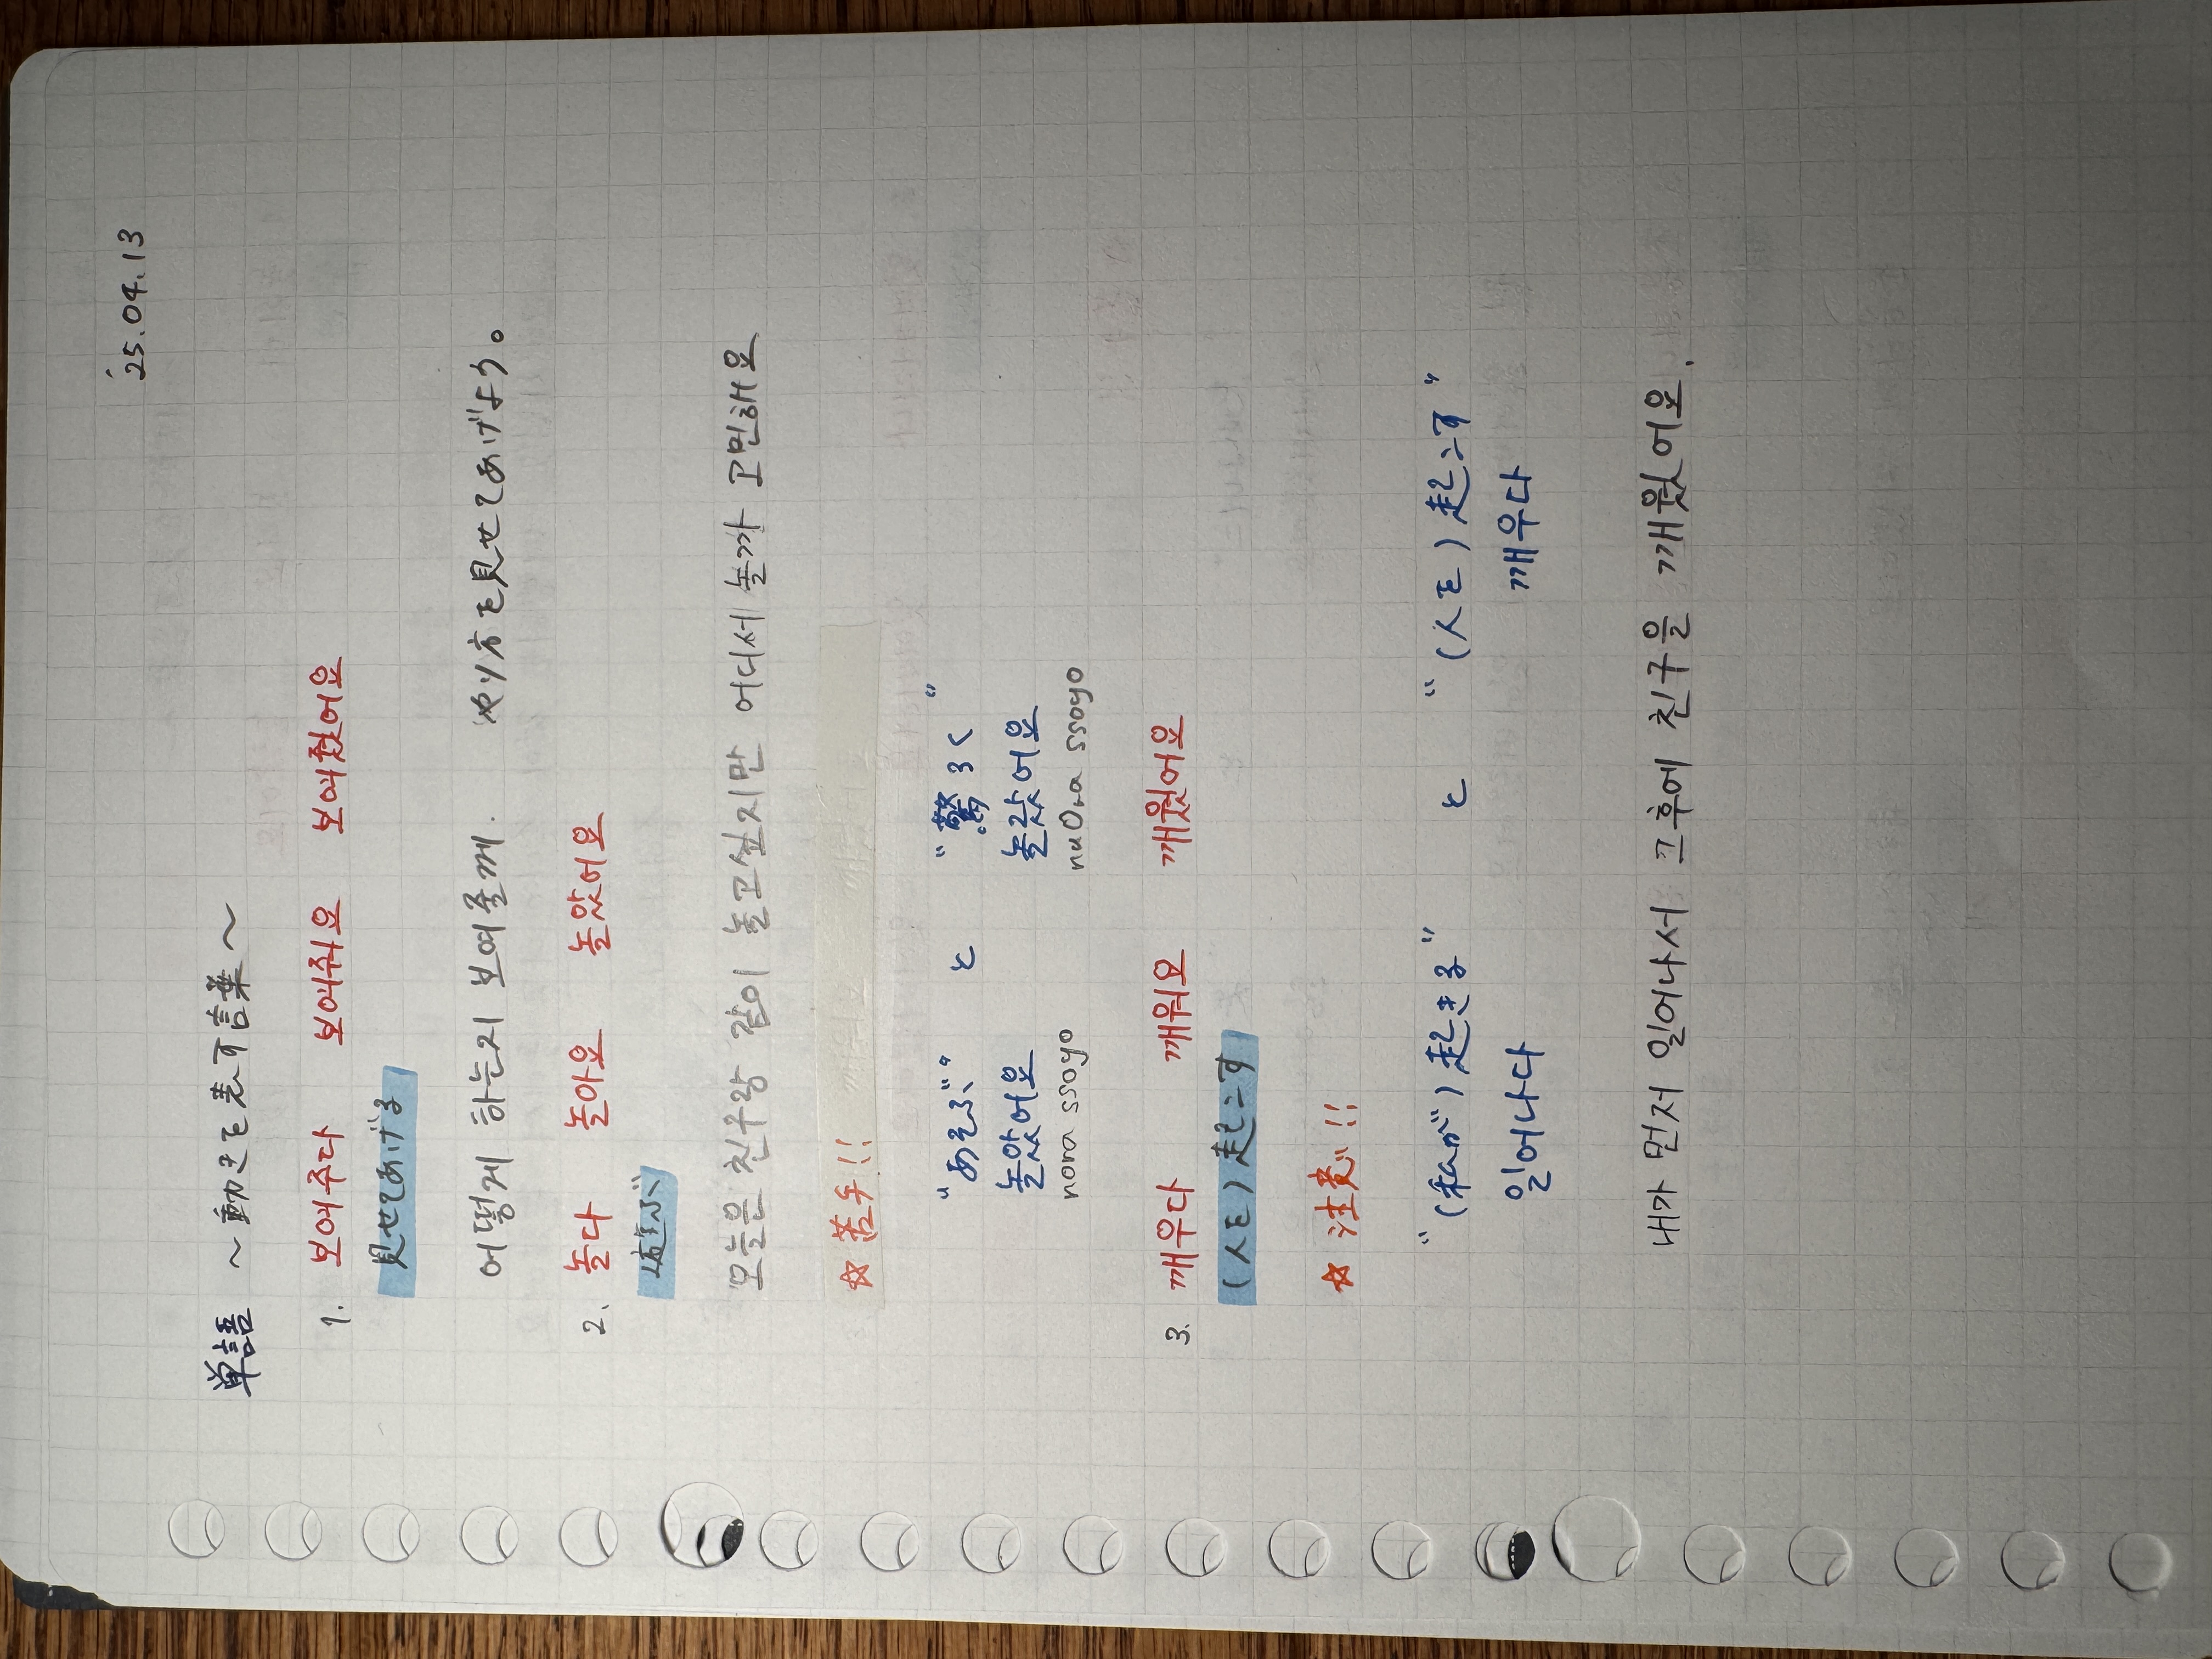 '25.04.13
単語 〜動きを表す言葉〜
1. 보여주다 보여줘요 보여줬어요
見せてあげる
어떻게 하는지 보여줄께. やり方を見せてあげよう。
2. 놀다 놀아요 놀았어요
遊ぶ
오늘은 친구랑 같이 놀고싶지만 어디서 놀까 고민해요
☆ 苦手!!
"あそぶ" と "驚ろく"
놀았어요 놀랐어요
nora ssoyo nuOra ssoyo
3. 깨우다 깨워요 깨웠어요
(人を)起こす
☆ 注意!!
"(私が)起きる" と "(人を)起こす"
일어나다 깨우다
내가 먼저 일어나서 그후에 친구을 깨웠어요.